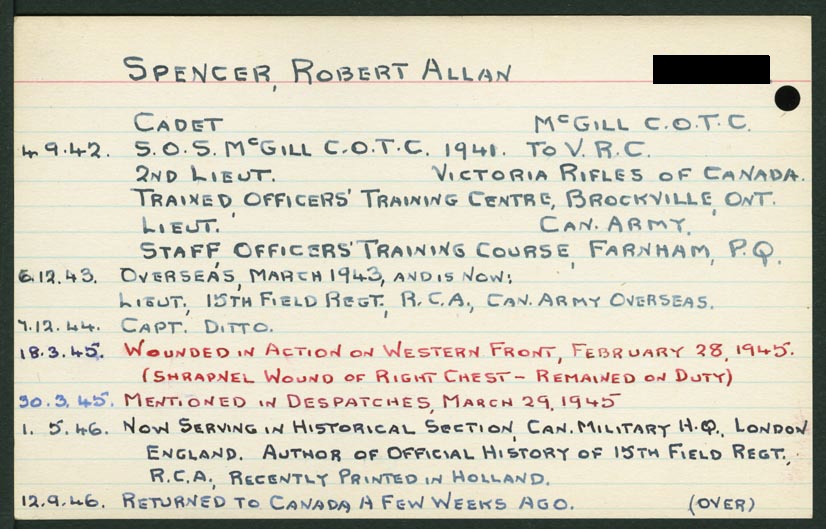 SPENCER, ROBERT ALLAN
CADET McGILL C.O.T.C.
4.9.42. S.O.S. McGILL C.O.T.C. 1941. TO V.R.C.
2ND LIEUT. VICTORIA RIFLES OF CANADA.
TRAINED OFFICERS' TRAINING CENTRE, BROCKVILLE, ONT.
LIEUT. CAN. ARMY.
STAFF, OFFICERS' TRAINING COURSE, FARNHAM, P.Q.
6.12.43. OVERSEAS, MARCH 1943, AND IS NOW:
LIEUT., 15TH FIELD REGT., R.C.A., CAN. ARMY OVERSEAS.
7.12.44. CAPT. DITTO.
18.3.45. WOUNDED IN ACTION ON WESTERN FRONT, FEBRUARY 28, 1945.
(SHRAPNEL WOUND OF RIGHT CHEST - REMAINED ON DUTY)
30.3.45. MENTIONED IN DESPATCHES, MARCH 29, 1945
1. 5.46. NOW SERVING IN HISTORICAL SECTION, CAN. MILITARY H.Q., LONDON
ENGLAND. AUTHOR OF OFFICIAL HISTORY OF 15TH FIELD REGT.,
R.C.A., RECENTLY PRINTED IN HOLLAND.
12.9.46. RETURNED TO CANADA A FEW WEEKS AGO. (OVER)